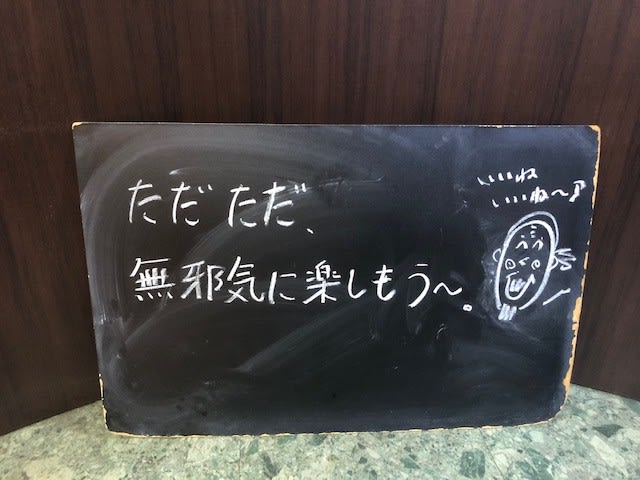 ただただ、
無邪気に楽しもう〜。
いいね
いいね〜♪